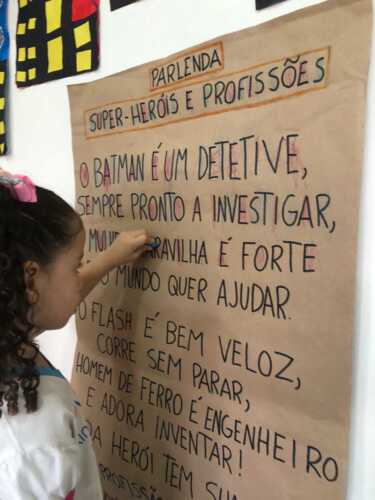 PARLENDA
SUPER-HERÓIS E PROFISSÕES
O BATMAN É UM DETETIVE,
SEMPRE PRONTO A INVESTIGAR,
MARAVILHA É FORTE
O MUNDO QUER AJUDAR.
O FLASH É BEM VELOZ,
CORRE SEM PARAR,
HOMEM DE FERRO É ENGENHEIRO
E ADORA INVENTAR!
HERÓI TEM SUA